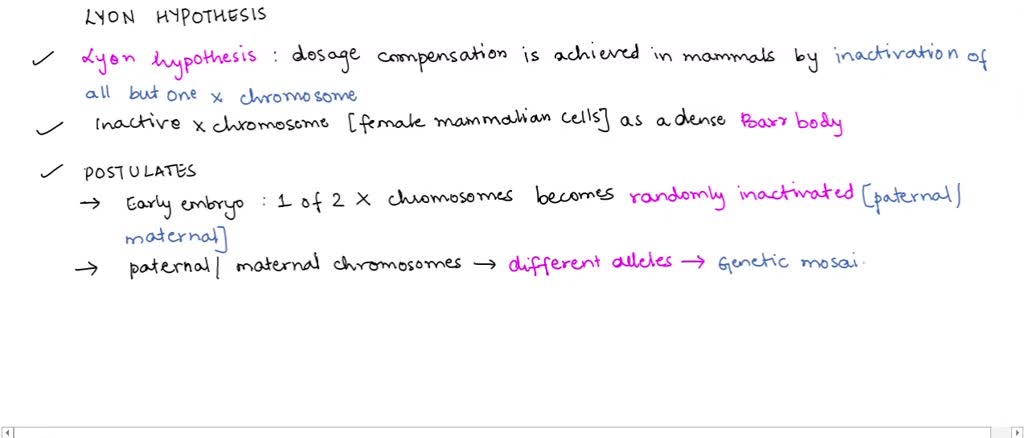 LYON HYPOTHESIS
Lyon hypothesis : dosage compensation is achieved in mammals by inactivation of
all but one x chromosome
Inactive x chromosome [female mammalian cells] as a dense Barr body
POSTULATES
→ Early embryo : 1 of 2 X chromosomes becomes randomly inactivated [paternal/
maternal]
→ paternal/ maternal chromosomes → different alleles → Genetic mosai